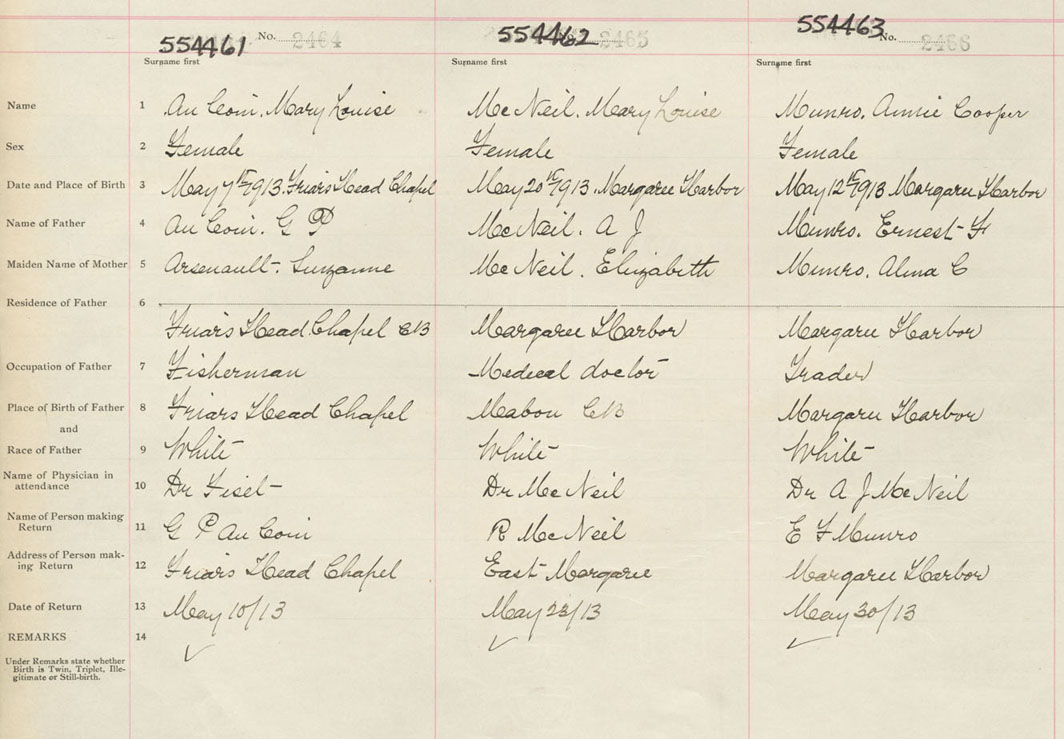 554461 No. 2464 554462 2465 554463 No. 2466
Surname first Surname first Surname first
Name 1 Au Coin. Mary Louise McNeil. Mary Louise Munro. Annie Cooper
Sex 2 Female Female Female
Date and Place of Birth 3 May 7th 1913. Friars Head Chapel May 20th 1913. Margaree Harbor May 12th 1913 Margaree Harbor
Name of Father 4 Au Coin. G P McNeil. A J Munro. Ernest F
Maiden Name of Mother 5 Arsenault. Suzanne McNeil. Elizabeth Munro. Alma C
Residence of Father 6
Friars Head Chapel CB Margaree Harbor Margaree Harbor
Occupation of Father 7 Fisherman Medical doctor Trader
Place of Birth of Father 8 Friars Head Chapel Mabou CB Margaree Harbor
and
Race of Father 9 White White White
Name of Physician in
attendance 10 Dr Fiset Dr McNeil Dr A J McNeil
Name of Person making
Return 11 G P Au Coin R McNeil E F Munro
Address of Person mak-
ing Return 12 Friars Head Chapel East Margarie Margaree Harbor
Date of Return 13 May 10/13 May 23/13 May 30/13
REMARKS 14
Under Remarks state whether
Birth is Twin, Triplet, Ille-
gitimate or Still-birth.